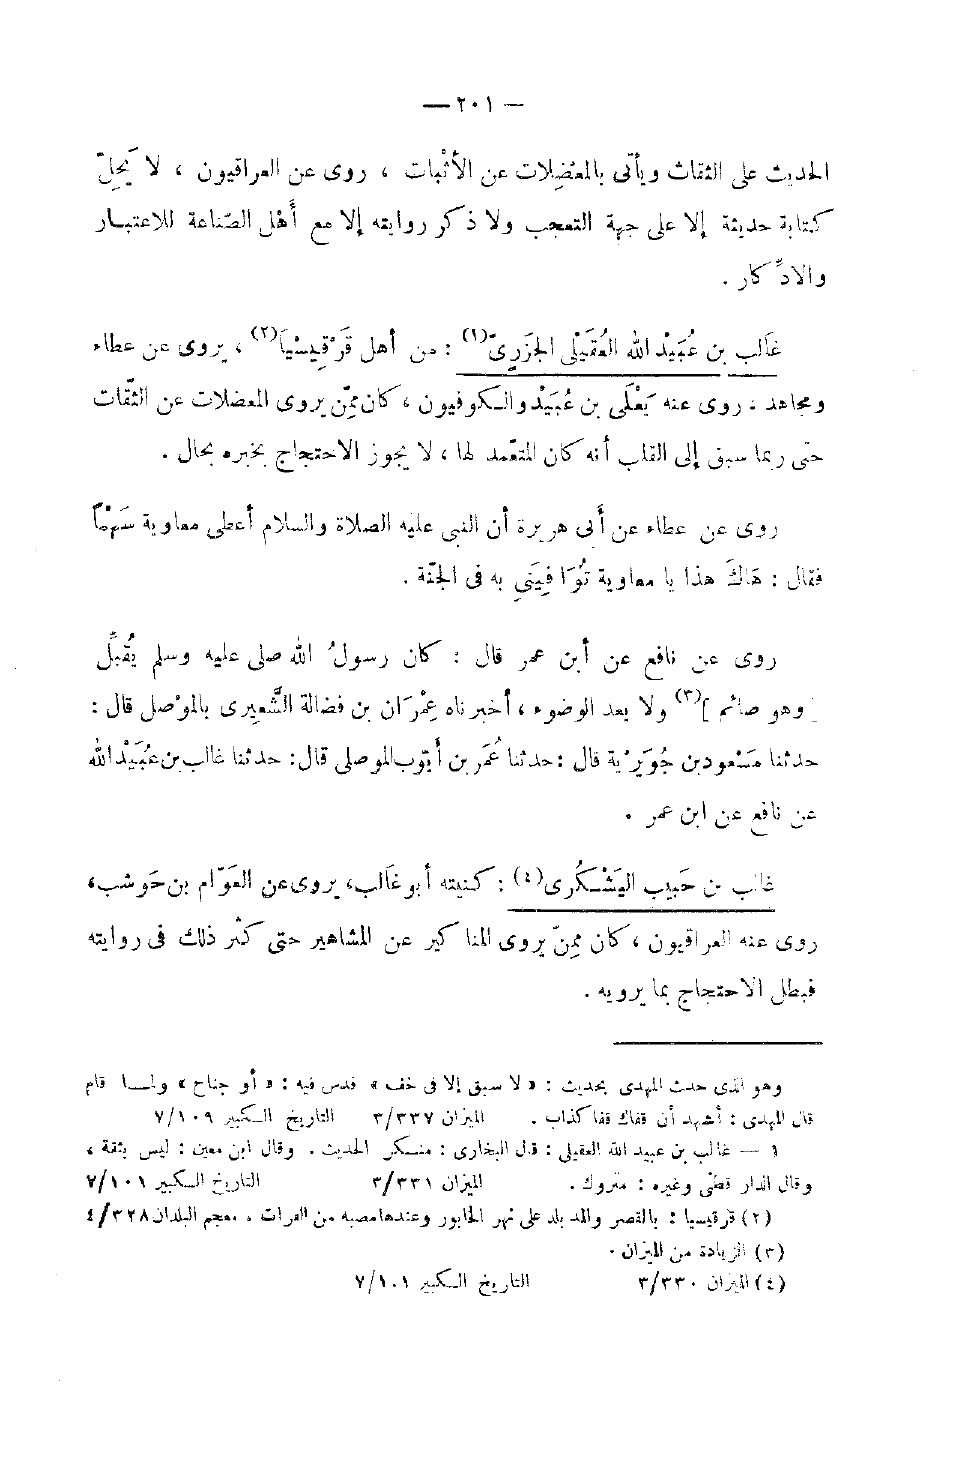 — ٢٠١ —
الحديث على الثقات ويأتى بالمعْضِلات عن الأثْبات ، روى عن العراقيون ، لا يَحِلّ
كتابة حديثة إلا على جهة التعجب ولا ذكر روايته إلا مع أَهْل الصّناعة للاعتبار
والادِّكار .
غَالب بن عُبَيْد الله العُقَيْلى الجَزَرِىّ(١) : من أهل قَرْقِيسْيَا(٢) ، يروى عن عطاء
ومجاهد ، روى عنه يَعْلَى بن عُبَيْد والكوفيون ، كان ممِّن يروى المعضلات عن الثِّقات
حتى ربما سبق إلى القلب أنه كان المتعمد لها ، لا يجوز الاحتجاج بخبره بحال .
روى عن عطاء عن أبى هريرة أن النبى عليه الصلاة والسلام أعطى معاوية سَهْمًا
فقال : هَاكَ هذا يا معاوية تُوَافِينَى به فى الجنّة .
روى عن نافع عن أبن عمر قال : كان رسولُ الله صلى عليه وسلم يُقَبِّل
[ وهو صائم ](٣) ولا بعد الوضوء ، أخبرناه عِمْرَان بن فضالة الشَّعِيرى بالموْصل قال :
حدثنا مَسْعود بن جُوَيْرِية قال : حدثنا عُمَر بن أيّوب الموصلى قال : حدثنا غالب بن عُبَيْد الله
عن نافع عن ابن عمر .
غالب بن حَبِيب اليَشْكُرى(٤) : كنيته أبو غَالب ، يروى عن العَوّام بن حَوشب ،
روى عنه العراقيون ، كان ممِنّ يروى المناكير عن المشاهير حتى كثُر ذلك فى روايته
فبطل الاحتجاج بما يرويه .
وهو الذى حدث المهدى بحديث : « لا سبق إلا فى خف » فدس فيه : « أو جناح » ولما قام
قال المهدى : أشهد أن قفاك قفا كذاب . الميزان ٣/٣٣٧ التاريخ الكبير ٧/١٠٩
١ — غالب بن عبيد الله العقيلى : قال البخارى : منكر الحديث . وقال ابن معين : ليس بثقة ،
وقال الدار قطنى وغيره : متروك . الميزان ٣/٣٣١ التاريخ الكبير ٧/١٠١
(٢) قرقيسيا : بالقصر والمد بلد على نهر الخابور وعندها مصبه من الفرات ، معجم البلدان ٤/٣٢٨
(٣) الزيادة من الميزان .
(٤) الميزان ٣/٣٣٠ التاريخ الكبير ٧/١٠١